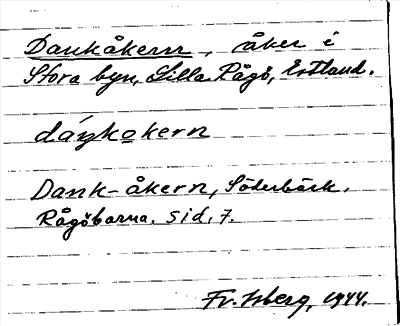 Dankåkern, åker i
Stora byn, Lilla Rågö, Estland.
dáŋkọkern
Dank-åkern, Söderbäck.
Rågöbarna. sid. 7.
Fr. Isberg, 1944.